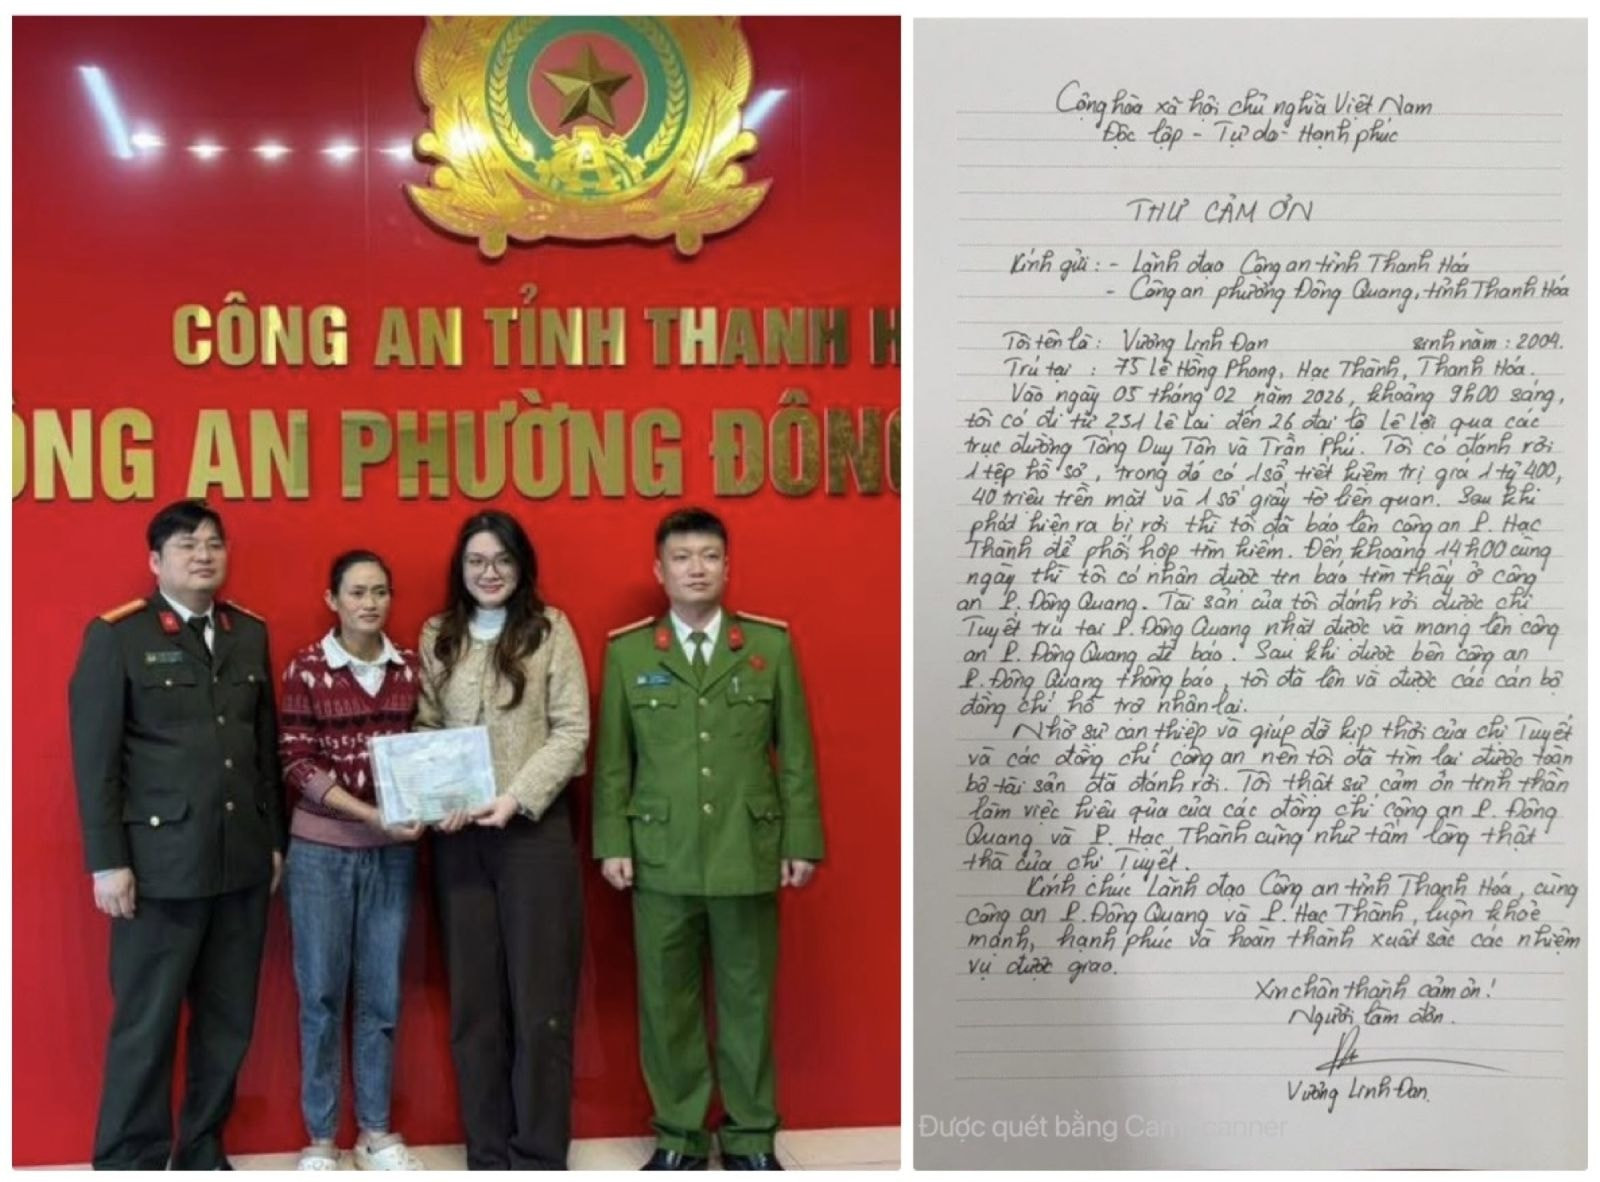 CÔNG AN TỈNH THANH H
ÔNG AN PHƯỜNG ĐÔNG
Cộng hòa xã hội chủ nghĩa Việt Nam
Độc lập - Tự do - Hạnh phúc
THƯ CẢM ƠN
Kính gửi : - Lãnh đạo Công an tỉnh Thanh Hóa
- Công an phường Đông Quang, tỉnh Thanh Hóa
Tôi tên là : Vương Linh Đan sinh năm : 2004.
Trú tại : 75 Lê Hồng Phong, Hạc Thành, Thanh Hóa.
Vào ngày 05 tháng 02 năm 2026, khoảng 9h00 sáng,
tôi có đi từ 251 Lê Lai đến 26 đại lộ Lê Lợi qua các
trục đường Tống Duy Tân và Trần Phú. Tôi có đánh rơi
1 tệp hồ sơ, trong đó có 1 sổ tiết kiệm trị giá 1 tỷ 400,
40 triệu tiền mặt và 1 số giấy tờ liên quan. Sau khi
phát hiện ra bị rơi thì tôi đã báo lên công an P. Hạc
Thành để phối hợp tìm kiếm. Đến khoảng 14h00 cùng
ngày thì tôi có nhận được tin báo tìm thấy ở công
an P. Đông Quang. Tài sản của tôi đánh rơi được chị
Tuyết trú tại P. Đông Quang nhặt được và mang lên công
an P. Đông Quang để báo. Sau khi được bên công an
P. Đông Quang thông báo, tôi đã lên và được các cán bộ
đồng chí hỗ trợ nhận lại.
Nhờ sự can thiệp và giúp đỡ kịp thời của chị Tuyết
và các đồng chí công an nên tôi đã tìm lại được toàn
bộ tài sản đã đánh rơi. Tôi thật sự cảm ơn tinh thần
làm việc hiệu quả của các đồng chí công an P. Đông
Quang và P. Hạc Thành cũng như tấm lòng thật
thà của chị Tuyết.
Kính chúc Lãnh đạo Công an tỉnh Thanh Hóa, cùng
công an P. Đông Quang và P. Hạc Thành, luôn khỏe
mạnh, hạnh phúc và hoàn thành xuất sắc các nhiệm
vụ được giao.
Xin chân thành cảm ơn !
Người làm đơn.
Vương Linh Đan.
Được quét bằng CamScanner